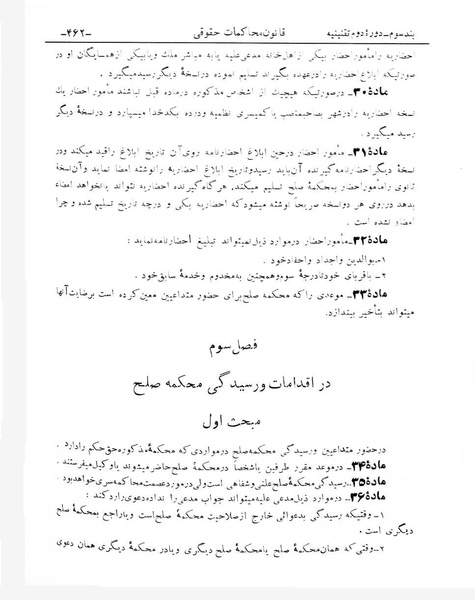 بند سوم ـ دورهٔ دوم تقنینیه قانون محاکمات حقوقی ـ۴۶۲ـ
احضاریه را مأمور احضار بیکی از اهل خانه مدعی علیه یا به مباشر ملك ویا بیکی از همسایگان او در
صورتیکه ابلاغ احضاریه را درعهده بگیرند تسلیم نموده درنسخهٔ دیگر رسید میگیرد .
مادهٔ ۳۰ـ درصورتیکه هیچیك از اشخاص مذکوره درمادهٔ قبل نباشند مأمور احضار یك
نسخه احضاریه را درشهر بصاحبمنصب یا کمیسری نظمیه ودرده بکدخدا میسپارد و درنسخهٔ دیگر
رسید میگیرد .
مادهٔ ۳۱ـ مأمور احضار درحین ابلاغ احضارنامه روی آن تاریخ ابلاغ را قید میکند ودر
نسخهٔ دیگر احضارنامه گیرنده آن باید رسید وتاریخ ابلاغ احضاریه را نوشته امضا نماید وآن نسخهٔ
ثانوی را مأمور احضار بمحکمهٔ صلح تسلیم میکند، هرگاه گیرنده احضاریه نتواند یا نخواهد امضاء
بدهد درروی هر دونسخه صریحاً نوشته میشود که احضاریه بکی و درچه تاریخ تسلیم شده و چرا
امضاء نشده است .
مادهٔ ۳۲ـ مأمور احضار درموارد ذیل نمیتواند تبلیغ احضارنامه نماید :
۱ـ بوالدین واجداد واحفاد خود .
۲ـ باقربای خود تا درجهٔ سوم وهمچنین به مخدوم وخدمهٔ سابق خود .
مادهٔ ۳۳ـ موعدی را که محکمه صلح برای حضور متداعیین معین کرده است برضایت آنها
میتواند بتأخیر بیندازد.
فصل سوم
در اقدامات ورسیدگی محکمه صلح
مبحث اول
درحضور متداعیین ورسیدگی محکمه صلح درمواردی که محکمهٔ مذکوره حق حکم را دارد .
مادهٔ ۳۴ـ درموعد مقرر طرفین یا شخصاً درمحکمهٔ صلح حاضر میشوند یا وکیل میفرستند .
مادهٔ ۳۵ـ رسیدگی محکمهٔ صلح علنی وشفاهی است ولی درمورد عصمت محاکمه سری خواهد بود .
مادهٔ ۳۶ـ درموارد ذیل مدعی علیه میتواند جواب مدعی را نداده دعوی را رد کند :
۱ـ وقتیکه رسیدگی بدعوائی خارج از صلاحیت محکمهٔ صلح است ویا راجع بمحکمهٔ صلح
دیگری است .
۲ـ وقتی که همان محکمهٔ صلح یا محکمه صلح دیگری ویا در محکمهٔ دیگری همان دعوی